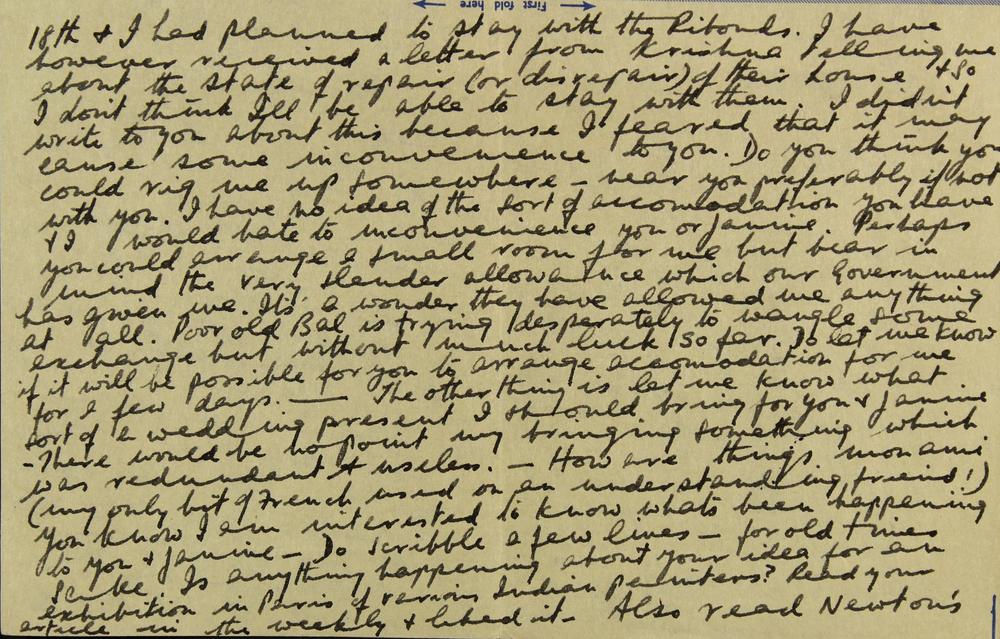 First fold here
18th & I had planned to stay with the Ribouds. I have
however received a letter from Krishna telling me
about the state of repair (or disrepair) of their house & so
I dont think Ill be able to stay with them. I didn't
write to you about this because I feared that it may
cause some inconvenience to you. Do you think you
could rig me up somewhere – near you preferably if not
with you. I have no idea of the sort of accomodation you have
& I would hate to inconvenience you or Janine. Perhaps
you could arrange a small room for me but bear in
mind the very slender allowance which our Government
has given me. Its a wonder they have allowed me anything
at all. Poor old Bal is trying desperately to wangle some
exchange but without much luck so far. Do let me know
if it will be possible for you to arrange accomodation for me
for a few days. — The other thing is let me know what
sort of a wedding present I should bring for you & Janine
- There would be no point my bringing something which
was redundant & useless. – How are things mon ami
(my only bit of French used on an understanding friend!)
You know I am interested to know whats been happening
to you & Janine – Do scribble a few lines – for old times
sake. Is anything happening about your idea for an
exhibition in Paris of various Indian painters? Read your
article in the weekly & liked it - Also read Newton's